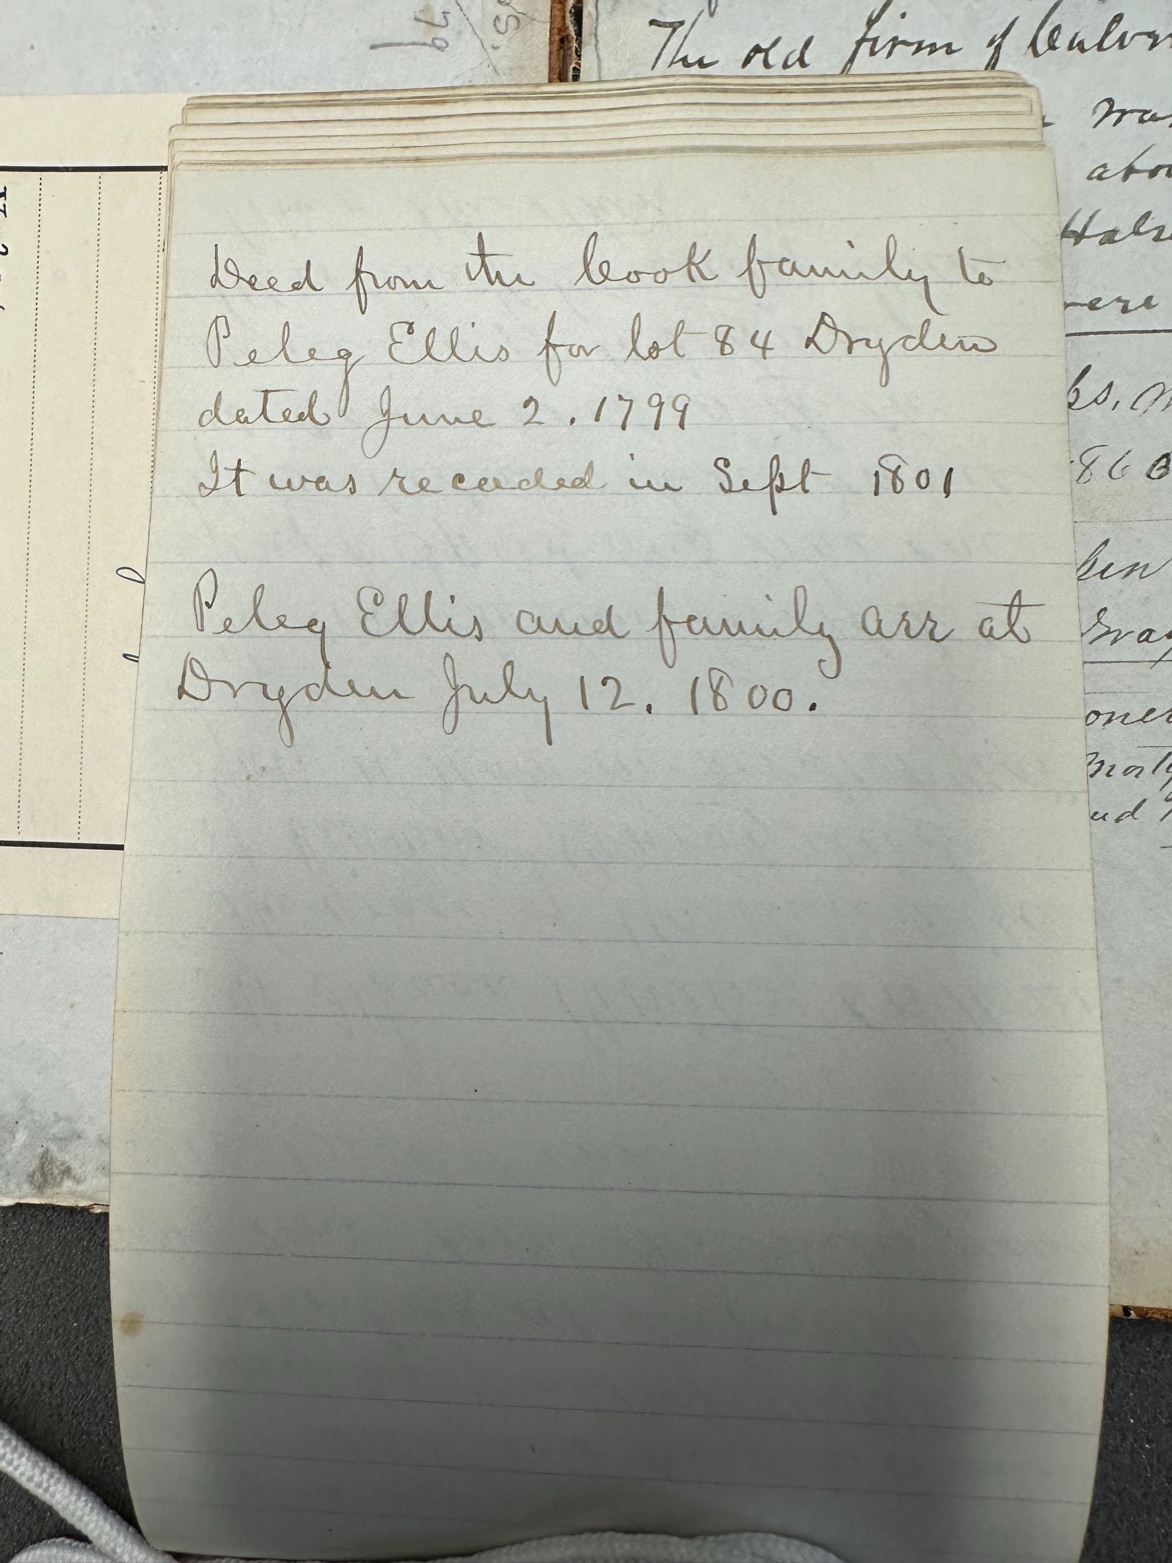 The old firm of
Deed from the Cook family to
Peleg Ellis for lot 84 Dryden
dated June 2. 1799
It was recorded in Sept 1801
Peleg Ellis and family arr at
Dryden July 12. 1800.